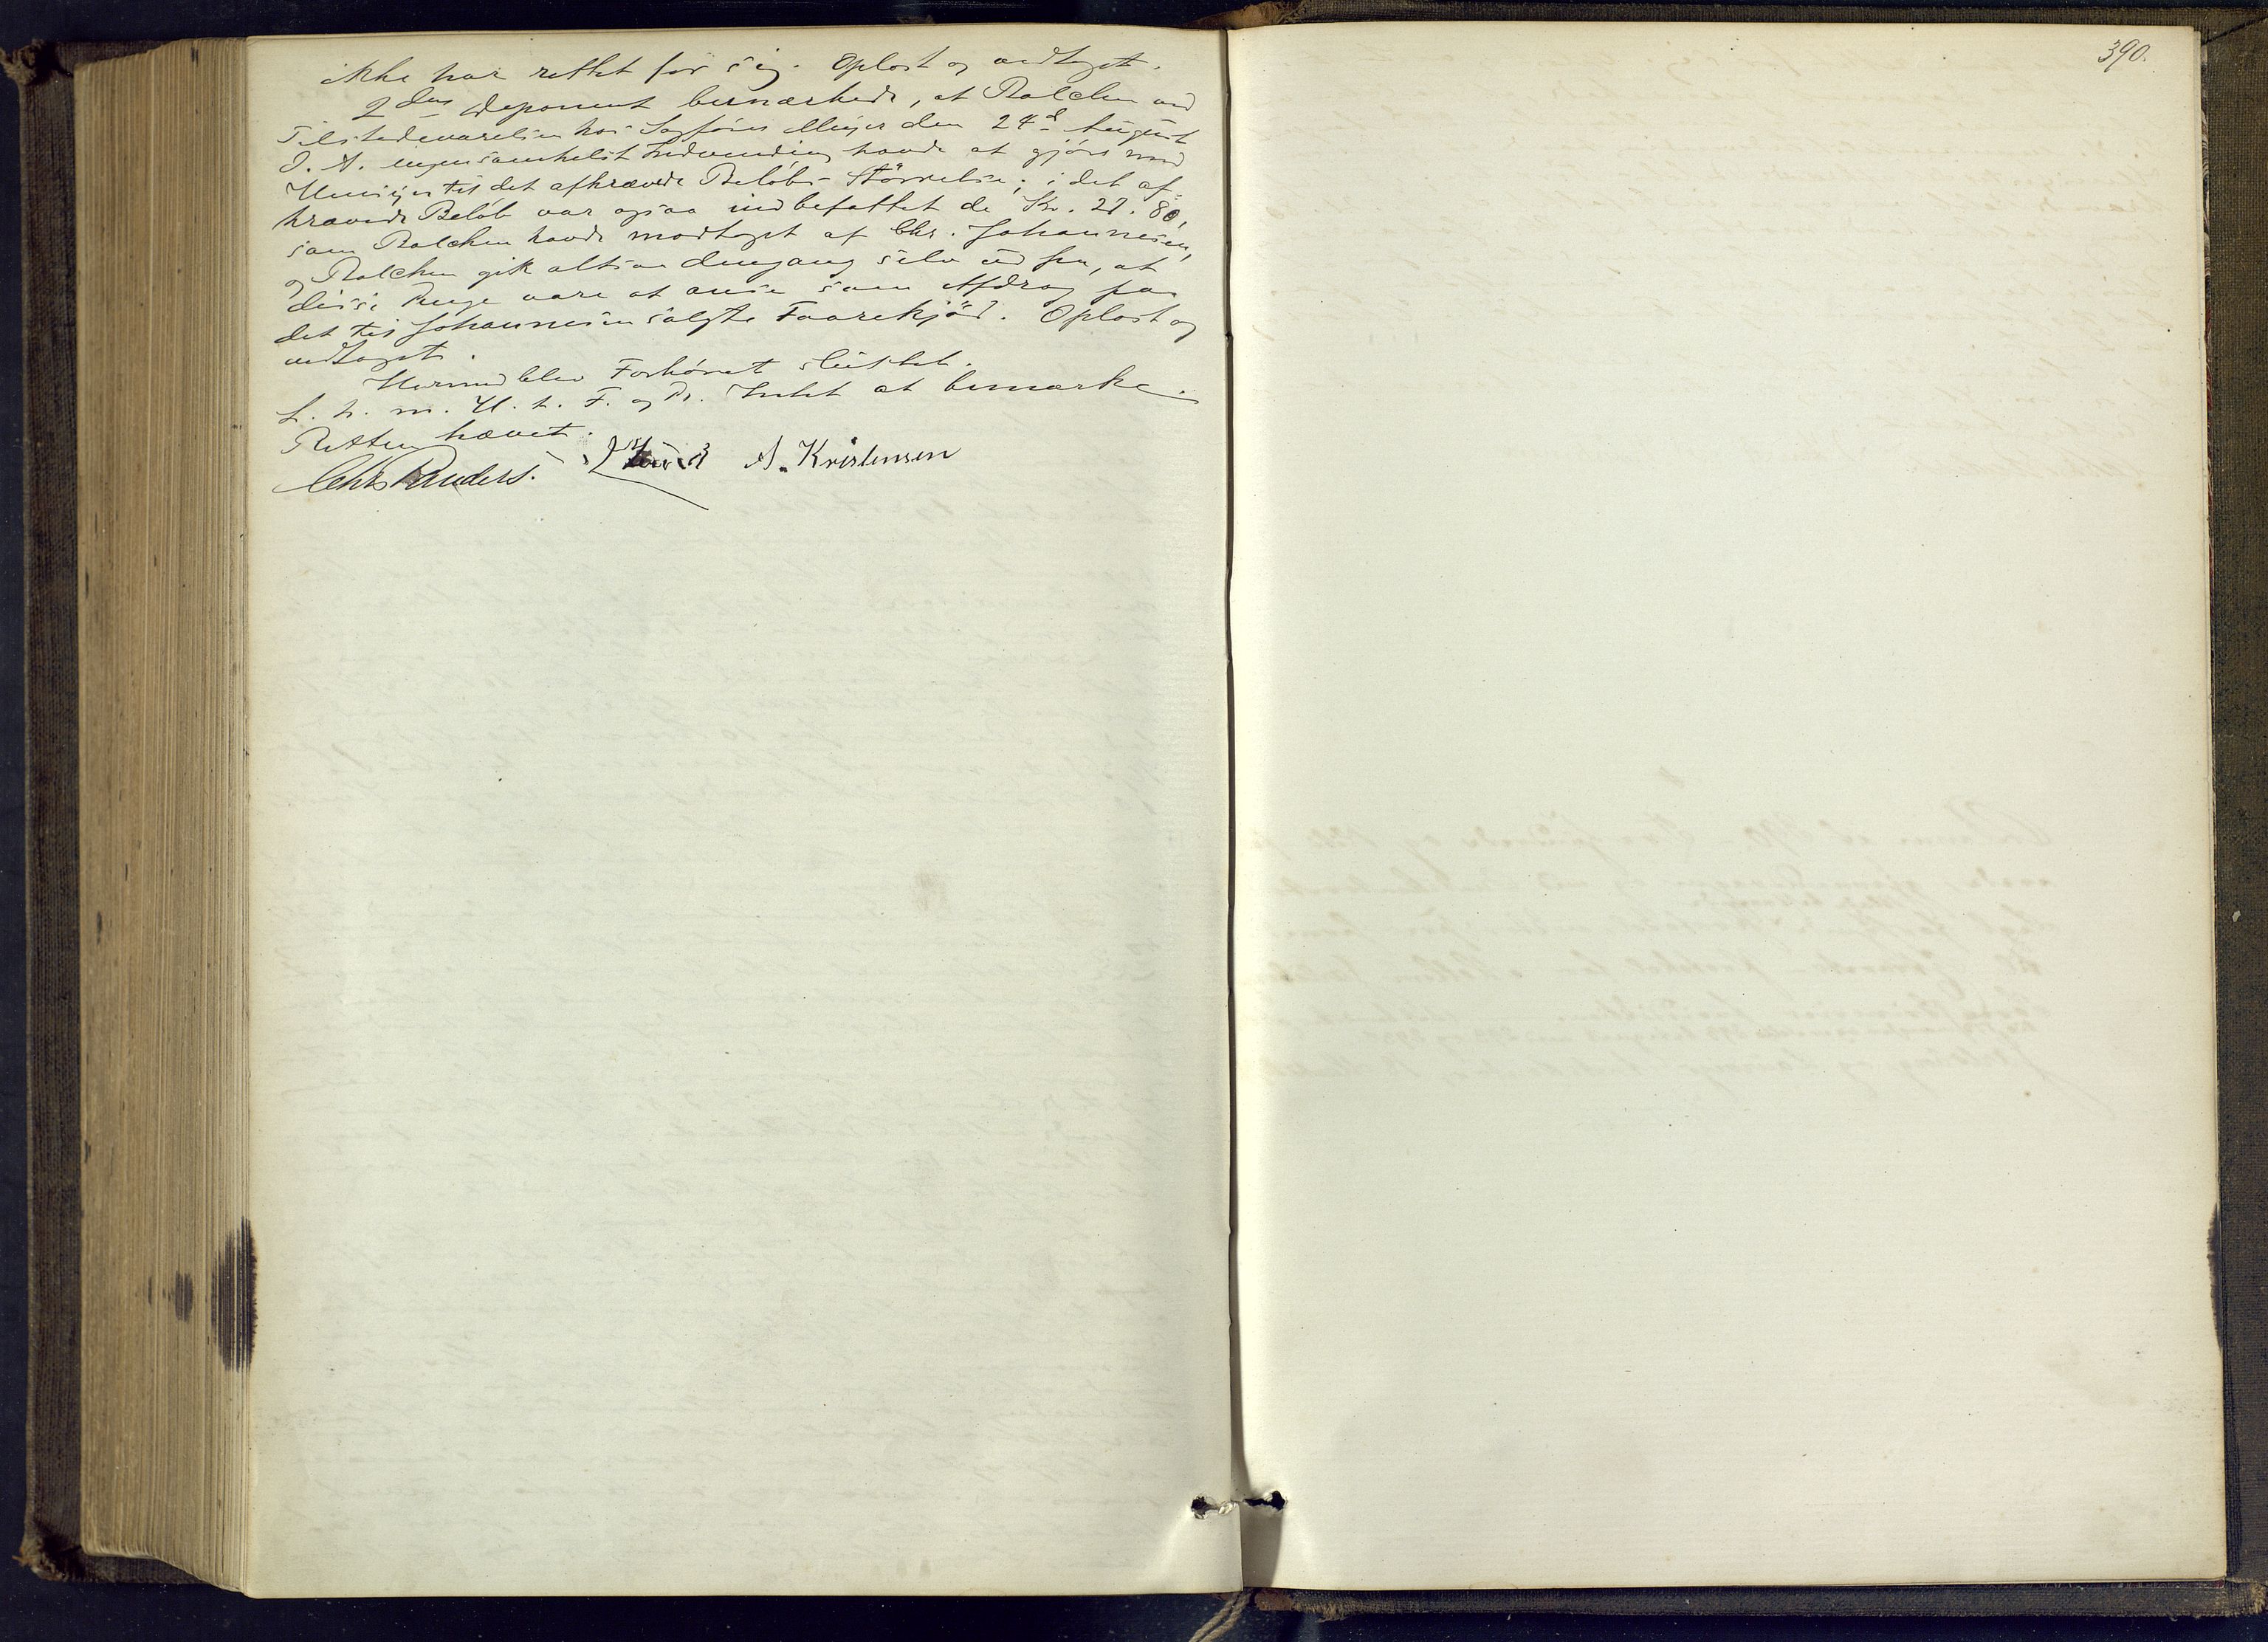 ikke har rettet for sig. Oplæst og vedtaget.
2den Deponent bemærkede, at Balchen ved
Tilstedeværelsen hos Sagfører Meijer den 24d August
d. A. ingensomhelst Indvending havde at gjøre med
Hensyn til det afkrævede Beløbs Størrelse; i det af-
krævede Beløb var ogsaa indbefattet de Kr. 27.80,
som Balchen havde modtaget af Chr. Johannesen,
og Balchen gik altsaa dengang selv ud fra, at
disse Penge vare at anse som Afdrag paa
det til Johannesen solgte Faarekjød. Oplæst og
vedtaget.
Hermed blev Forhøret sluttet.
L. v. m. H. t. F. og Pr. Intet at bemærke.
Retten hævet.
Chr Randers. A. Kristensen
390.